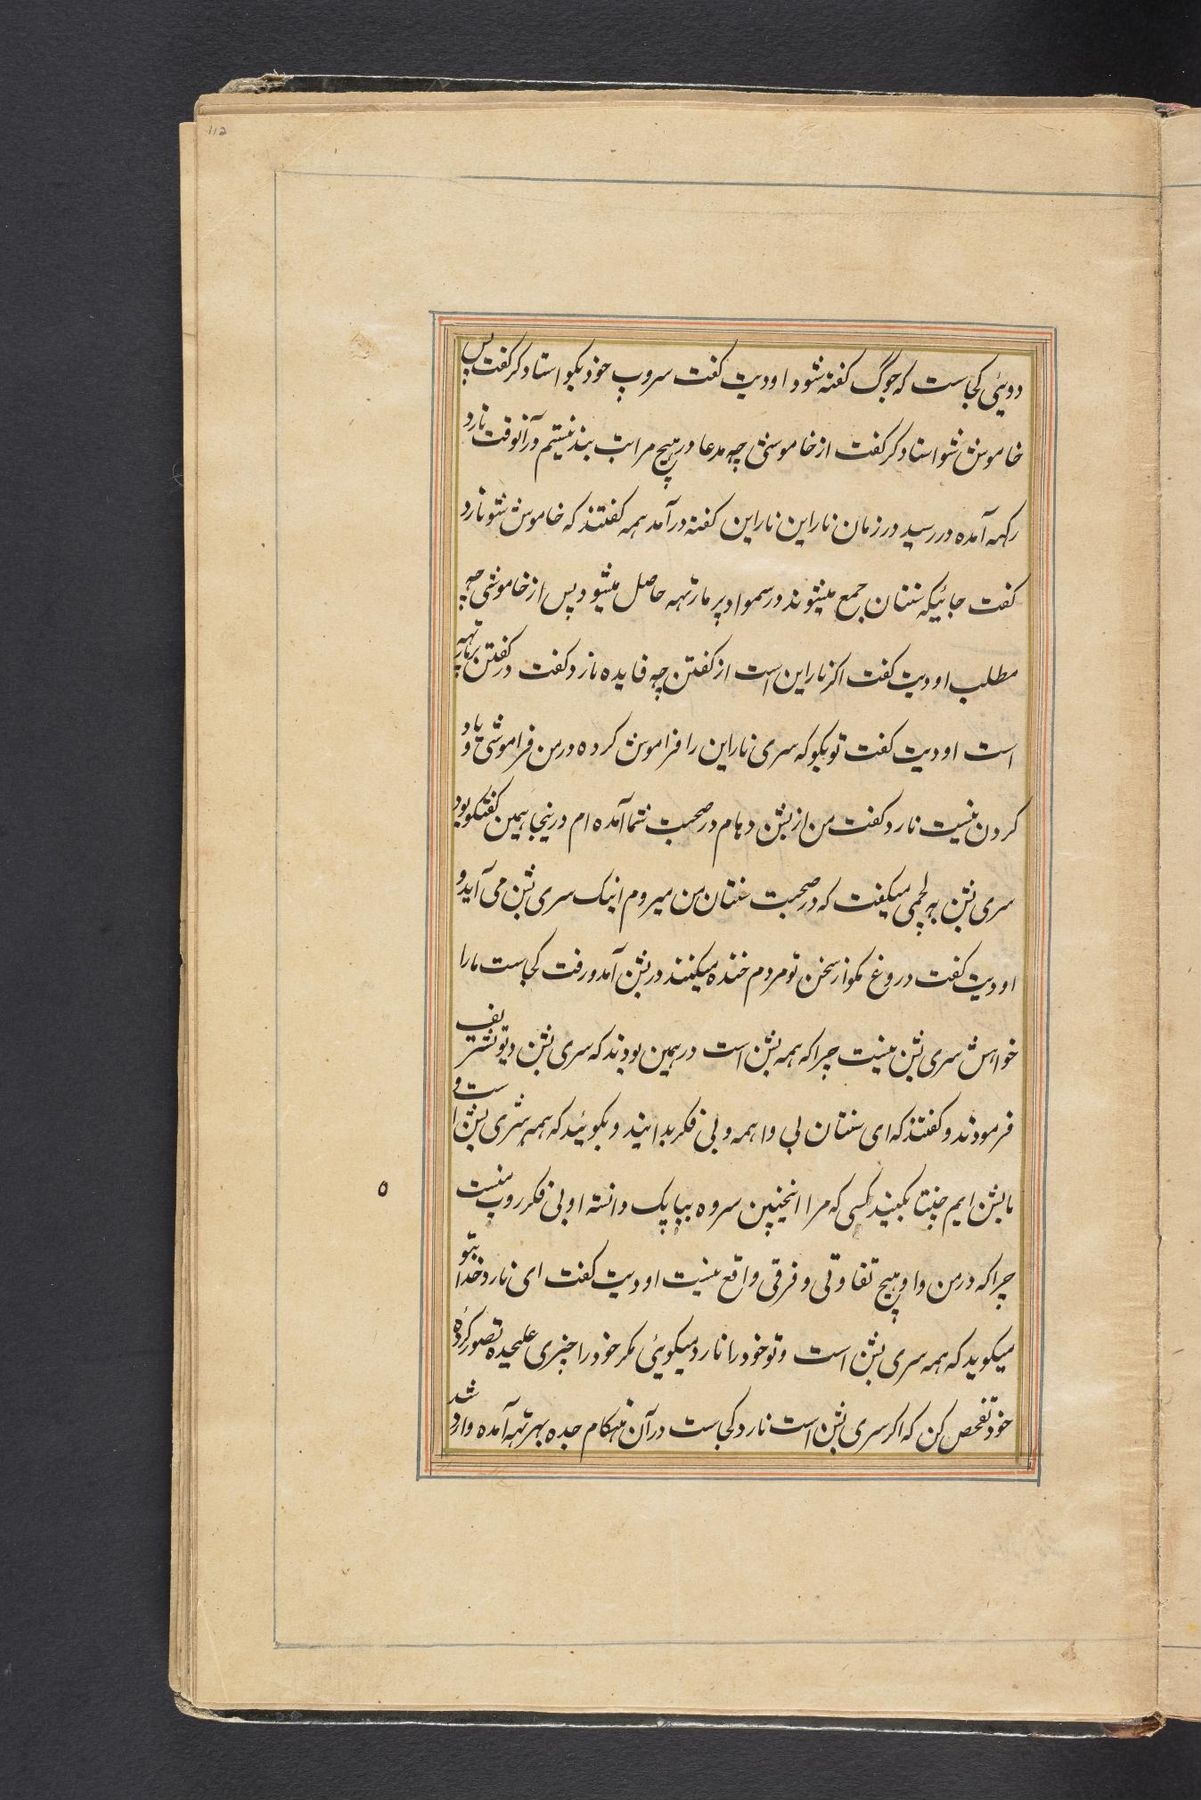 112
دویئی کجاست که جوگ کفته شود اودیت کفت سروپ خود بکو استاد کر کفت پس
خاموش شو استاد کر کفت از خاموشی چه مدعا در هیچ مراتب بند نیستم در آنوقت نارد
رکهه آمده در رسید در زمان ناراین ناراین کفته در آمد همه کفتند که خاموش شو نارد
کفت جائیکه سنتان جمع میشوند در سمواد پرمارتهه حاصل میشود پس از خاموشی چه
مطلب اودیت کفت اکر ناراین است از کفتن چه فایده نارد کفت در کفتن پرمارتهه
است اودیت کفت تو بکو که سری ناراین را فراموش کرده در من فراموشی و یاد
کردن نیست نارد کفت من از بشن دهام در صحبت شما آمده ام در ینجا همین کفتکو بود
سری بشن به لچمی میکفت که در صحبت سنتان من میروم اینک سری بشن می آید و
اودیت کفت دروغ مکو از سخن تو مردم خنده میکنند در بشن آمد و رفت کجاست مارا
خواهش سری بشن نیست چرا که همه بشن است در همین بودند که سری بشن دیو تشریف
فرمودند و کفتند که ای سنتان بی واهمه و بی فکر بدانید و بکوئید که همه سری بشن است و
ما بشن ایم چنتا مکنید کسی که مرا اینچنین سروه بیاپک دانسته او بی فکر روپ نیست
چرا که در من و او هیچ تفاوتی و فرقی واقع نیست اودیت کفت ای نارد خدا بتو
میکوید که همه سری بشن است و تو خود را نارد میکوئی مکر خود را چیزی علیحده تصور کرده
خود تفحص کن که اکر سری بشن است نارد کجاست در آن هنکام جده بهرتهه آمده وارد شد
ه